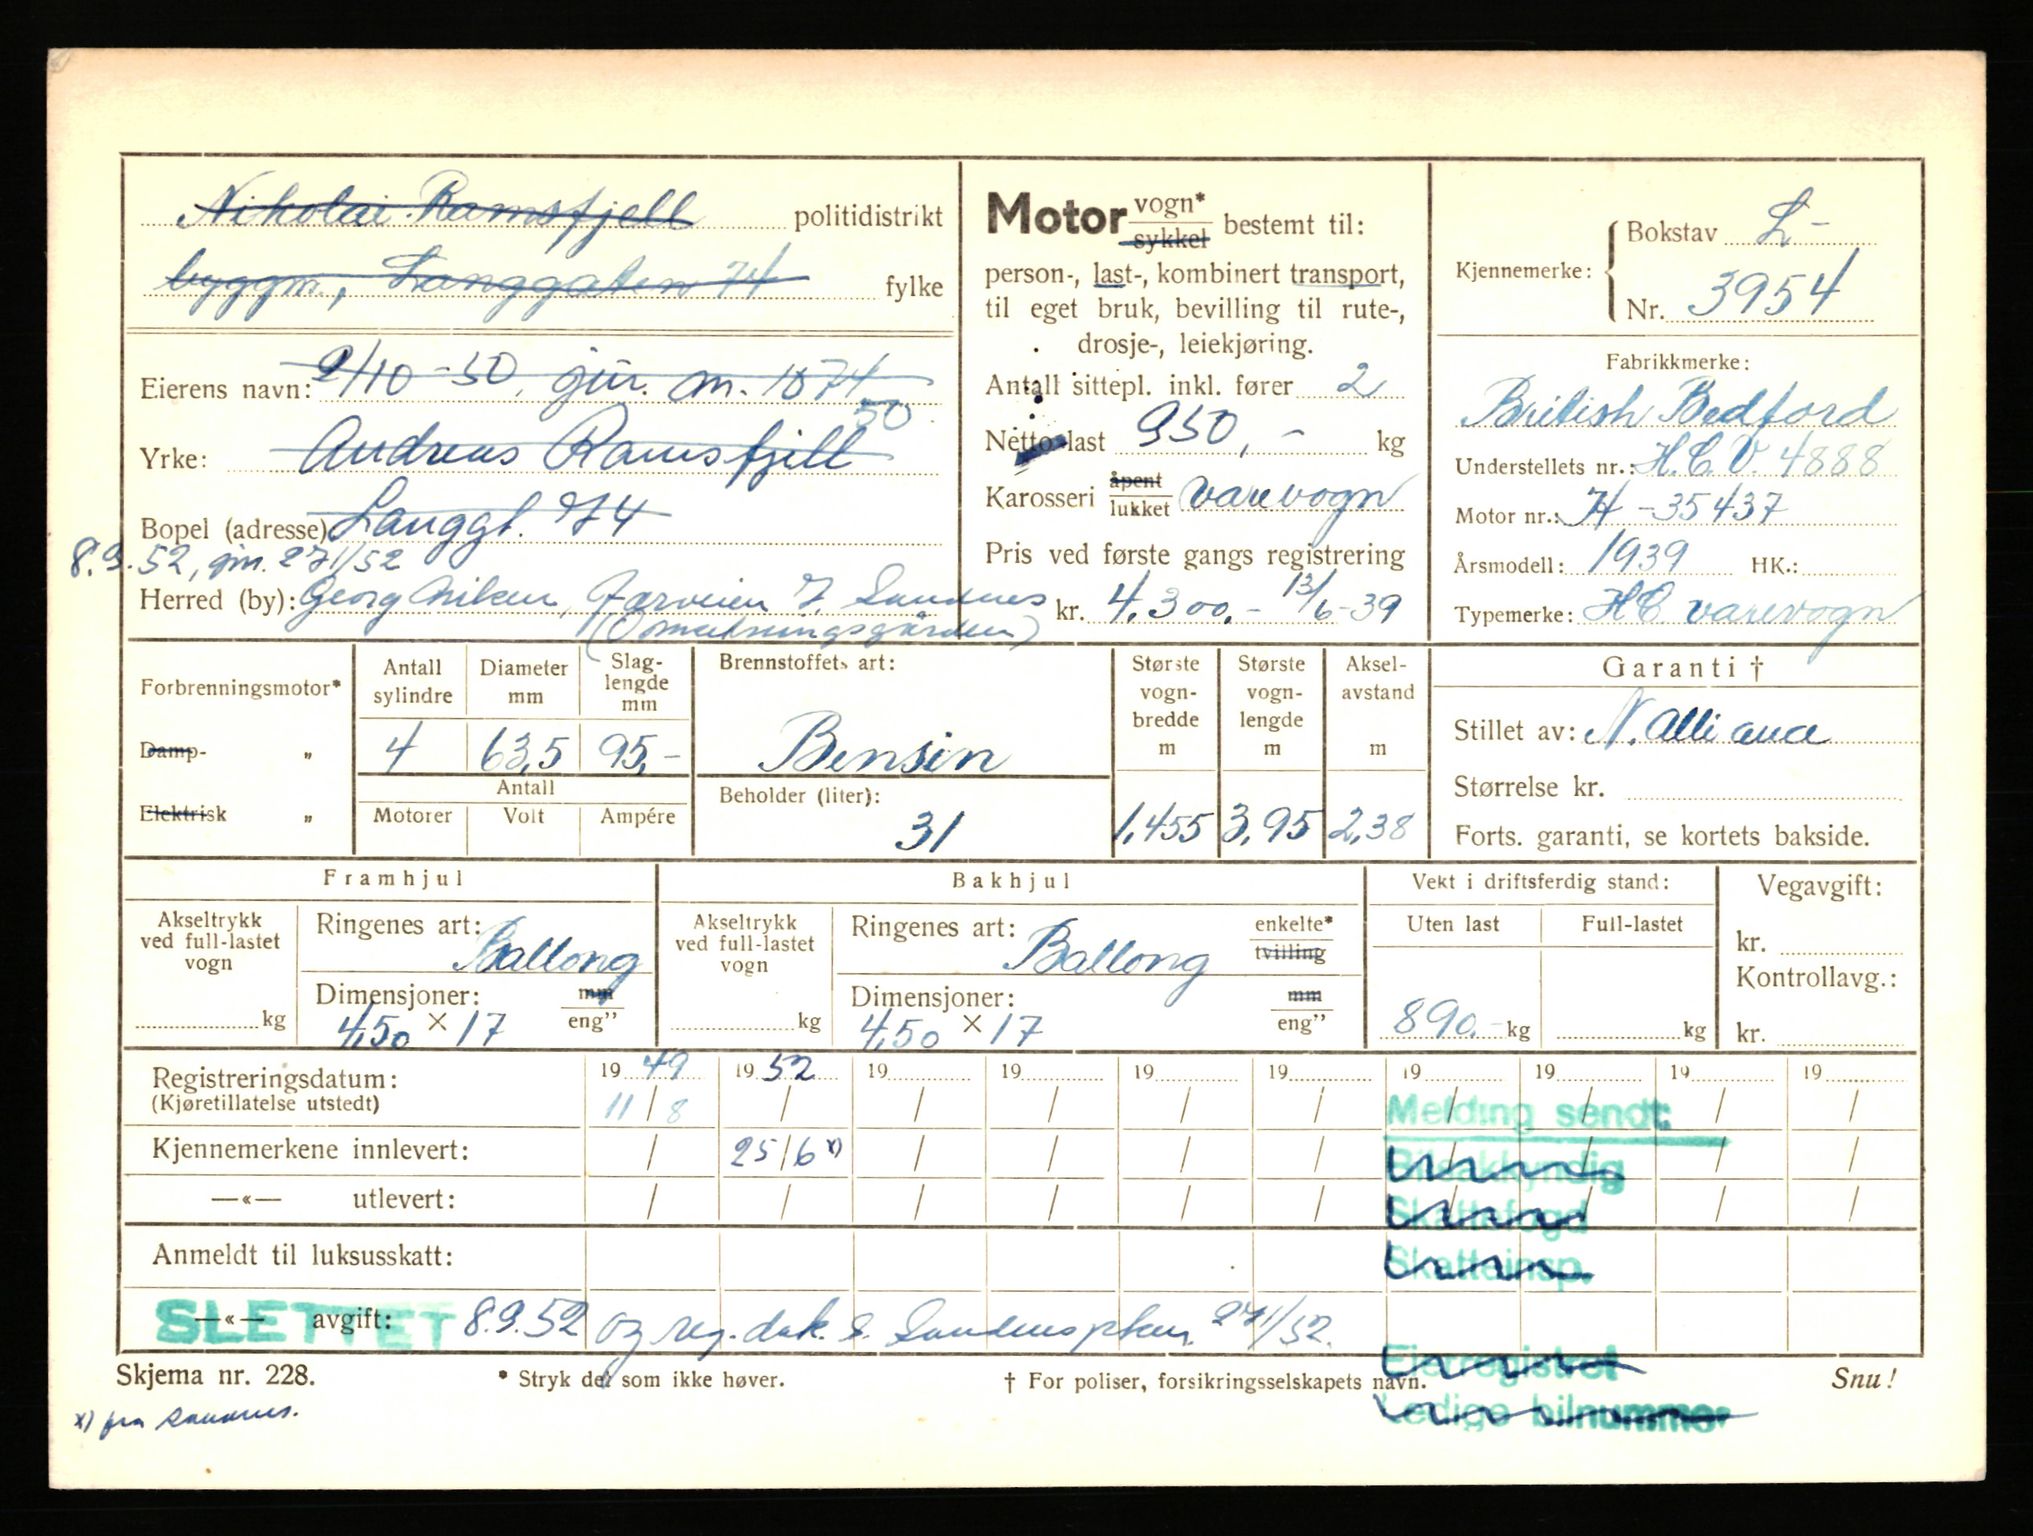 Nikolai Ramsfjell politidistrikt
byggm., Langgaten 74 fylke
Eierens navn: 2/10-50, jnr. m. 1074
50
Yrke: Andreas Ramsfjell
Bopel (adresse): Langgt. 74
8.9.52, jnr. 271/52
Herred (by): Georg Jærveien 7. Sandnes
Motor vogn* sykkel bestemt til:
person-, last-, kombinert transport,
til eget bruk, bevilling til rute-,
drosje-, leiekjøring.
Antall sittepl. inkl. fører 2
Netto last 350,- kg
Karosseri åpent lukket varevogn
Pris ved første gangs registrering
kr. 4.300.- 13/6-39
Kjennemerke: Bokstav L-
Nr. 3954
Fabrikkmerke:
British Bedford
Understellets nr.: H.C.V. 4888
Motor nr.: H-35437
Årsmodell: 1939 HK.:
Typemerke: HC varevogn
Forbrenningsmotor*
Damp- „
Elektrisk „
Antall sylindre 4
Diameter mm 63,5
Slag-lengde mm 95,-
Antall
Motorer Volt Ampére
Brennstoffets art:
Bensin
Beholder (liter):
31
Største vogn-bredde m 1,455
Største vogn-lengde m 3,95
Aksel-avstand m 2,38
Garanti †
Stillet av: N. Alliance
Størrelse kr.
Forts. garanti, se kortets bakside.
Framhjul
Akseltrykk ved full-lastet vogn kg
Ringenes art: Ballong
Dimensjoner: mm eng”
4,50 × 17
Bakhjul
Akseltrykk ved full-lastet vogn kg
Ringenes art: Ballong enkelte* tvilling
Dimensjoner: mm eng”
4,50 × 17
Vekt i driftsferdig stand:
Uten last Full-lastet
890.- kg kg
Vegavgift:
kr.
Kontrollavg.:
kr.
Registreringsdatum: 19 49 19 52 19 19 19 19 19 19 19 19
(Kjøretillatelse utstedt) 11/8 / / / / / / / / /
Melding sendt:
Kjennemerkene innlevert: / 25/6 x) / / / / / / / /
Bilsakkyndig
—«— utlevert: / / / / / / / / / /
Skattefogd
Anmeldt til luksusskatt:
Skatteinsp.
—«— avgift: SLETTET 8.9.52 og reg. dak. s. 271/52.
Eierregistret
Skjema nr. 228. * Stryk det som ikke høver. † For poliser, forsikringsselskapets navn. Snu!
Ledige bilnummer
x) fra Sandnes.